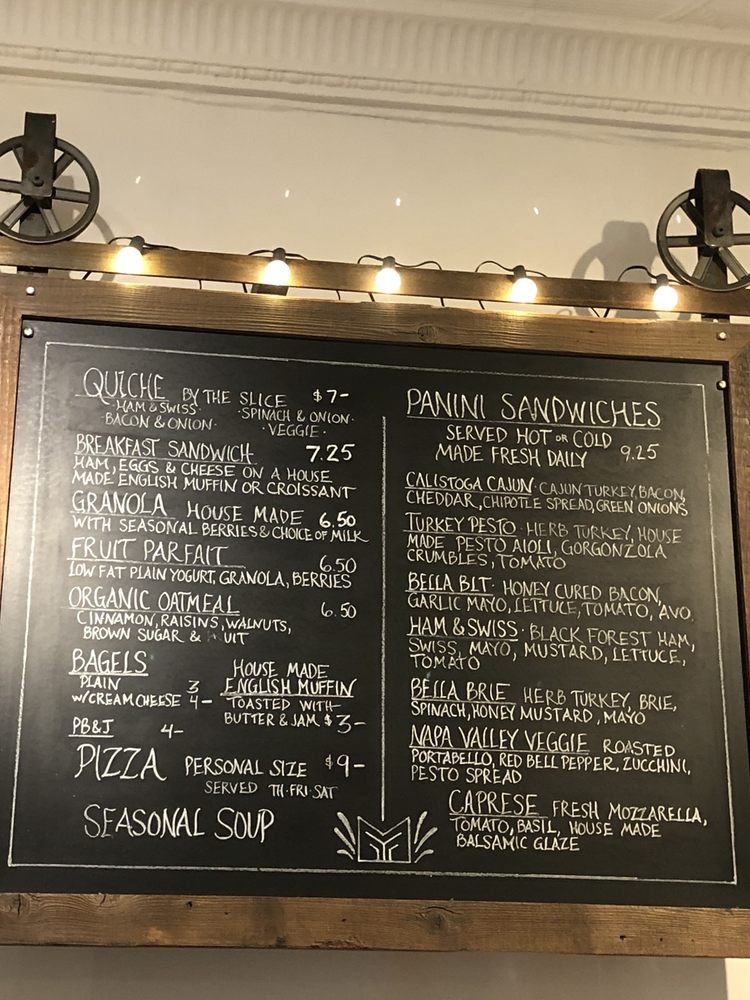 QUICHE BY THE SLICE $7-
·HAM & SWISS· ·SPINACH & ONION·
·BACON & ONION· ·VEGGIE·
BREAKFAST SANDWICH 7.25
HAM, EGGS & CHEESE ON A HOUSE
MADE ENGLISH MUFFIN OR CROISSANT
GRANOLA HOUSE MADE 6.50
WITH SEASONAL BERRIES & CHOICE OF MILK
FRUIT PARFAIT 6.50
LOW FAT PLAIN YOGURT, GRANOLA, BERRIES
ORGANIC OATMEAL 6.50
CINNAMON, RAISINS, WALNUTS,
BROWN SUGAR &
BAGELS
PLAIN 3
W/CREAM CHEESE 4-
PB&J 4-
HOUSE MADE
ENGLISH MUFFIN
TOASTED WITH
BUTTER & JAM $3-
PIZZA PERSONAL SIZE $9-
SERVED TH·FRI·SAT
SEASONAL SOUP
PANINI SANDWICHES
SERVED HOT OR COLD
MADE FRESH DAILY 9.25
CALISTOGA CAJUN· CAJUN TURKEY, BACON,
CHEDDAR, CHIPOTLE SPREAD, GREEN ONIONS
TURKEY PESTO· HERB TURKEY, HOUSE
MADE PESTO AIOLI, GORGONZOLA
CRUMBLES, TOMATO
BELLA BLT· HONEY CURED BACON,
GARLIC MAYO, LETTUCE, TOMATO, AVO.
HAM & SWISS· BLACK FOREST HAM,
SWISS, MAYO, MUSTARD, LETTUCE,
TOMATO
BELLA BRIE HERB TURKEY, BRIE,
SPINACH, HONEY MUSTARD, MAYO
NAPA VALLEY VEGGIE ROASTED
PORTABELLO, RED BELL PEPPER, ZUCCHINI,
PESTO SPREAD
CAPRESE FRESH MOZZARELLA,
TOMATO, BASIL, HOUSE MADE
BALSAMIC GLAZE